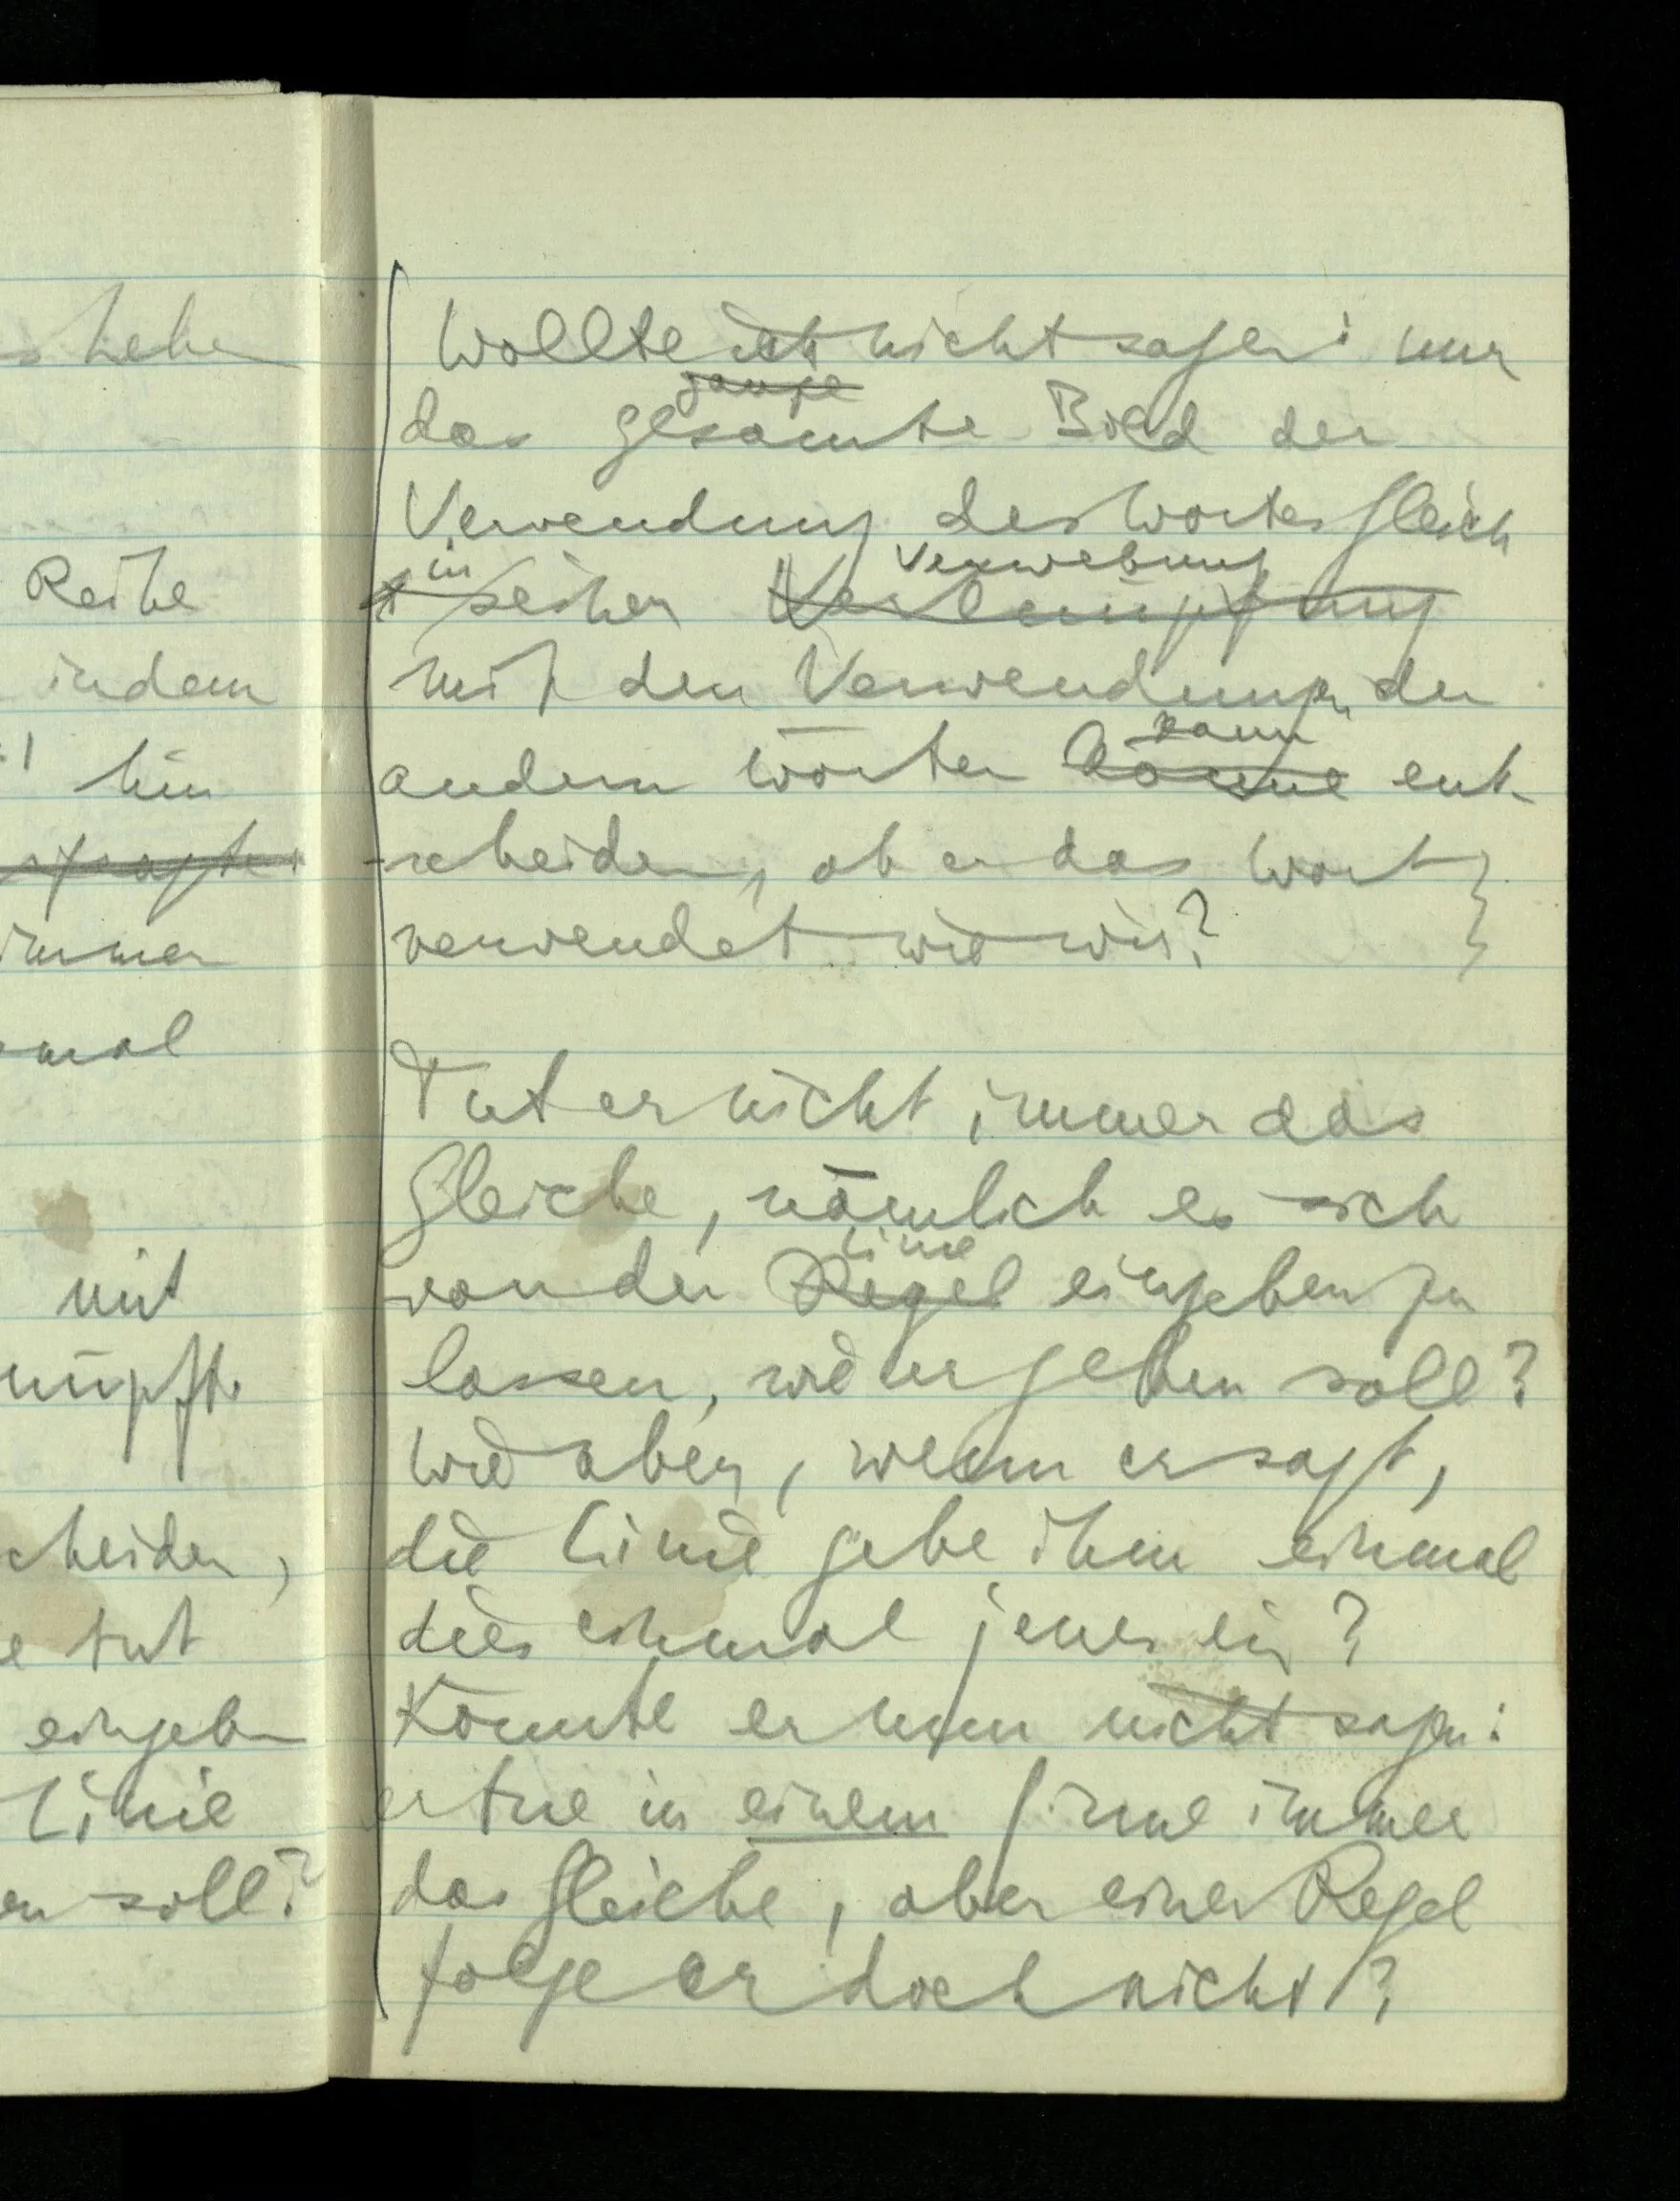 s hebe
Reihe
indem
hin
immer
mal
mit
nüpft.
cheiden,
e tut
eingeben
Linie
en soll?
Wollte ich nicht sagen: nur
ganze
das gesamte Bild der
Verwendung des Wortes gleich
in Verwebung
seiner Verknüpfung
mit den Verwendungen der
kann
andern Wörter könne ent-
scheiden, ob er das Wort
verwendet wie wir?
Tut er nicht immer das
Gleiche, nämlich es sich
Linie
von der Regel eingeben zu
lassen, wie er gehen soll?
Wie aber, wenn er sagt,
die Linie gebe ihm einmal
dies einmal jenes ein?
Könnte er nun nicht sagen:
er tue in einem Sinne immer
das Gleiche, aber einer Regel
folge er doch nicht?